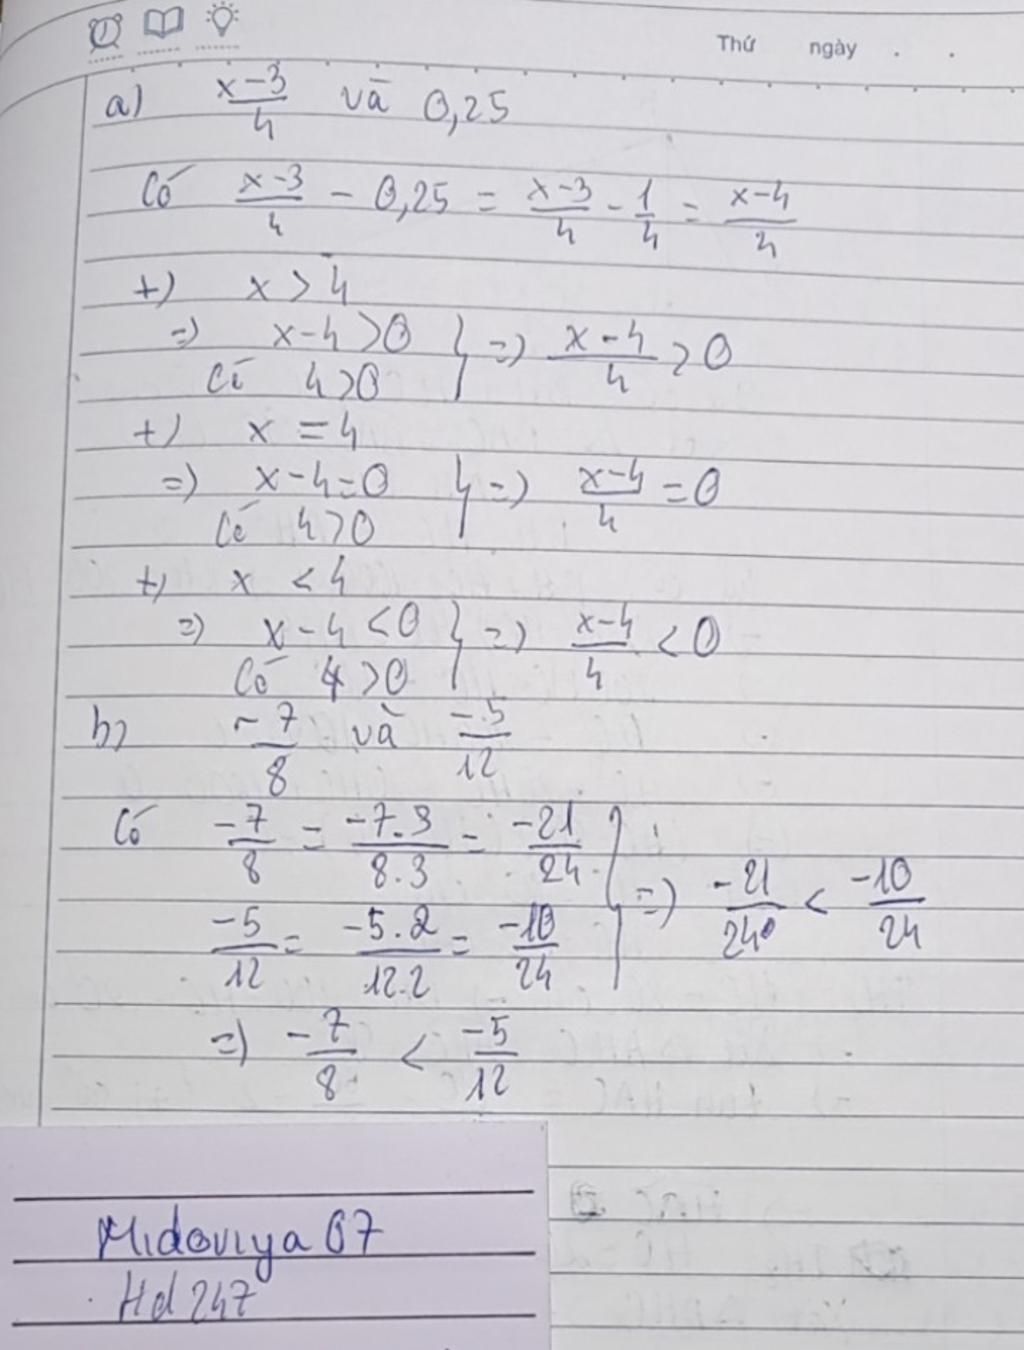 Thứ ngày . .
a) x-3/4 và 0,25
Có x-3/4 - 0,25 = x-3/4 - 1/4 = x-4/4
+) x > 4
=) x-4 >0 } =) x-4/4 > 0
Có 4 >0
+) x = 4
=) x-4=0 } =) x-4/4 = 0
Có 4 >0
+) x < 4
=) x-4 <0 } =) x-4/4 < 0
Có 4 >0
b) -7/8 và -5/12
Có -7/8 = -7.3/8.3 = -21/24
-5/12 = -5.2/12.2 = -10/24 } =) -21/24 < -10/24
=) -7/8 < -5/12
Midoviya 07
Hd 247